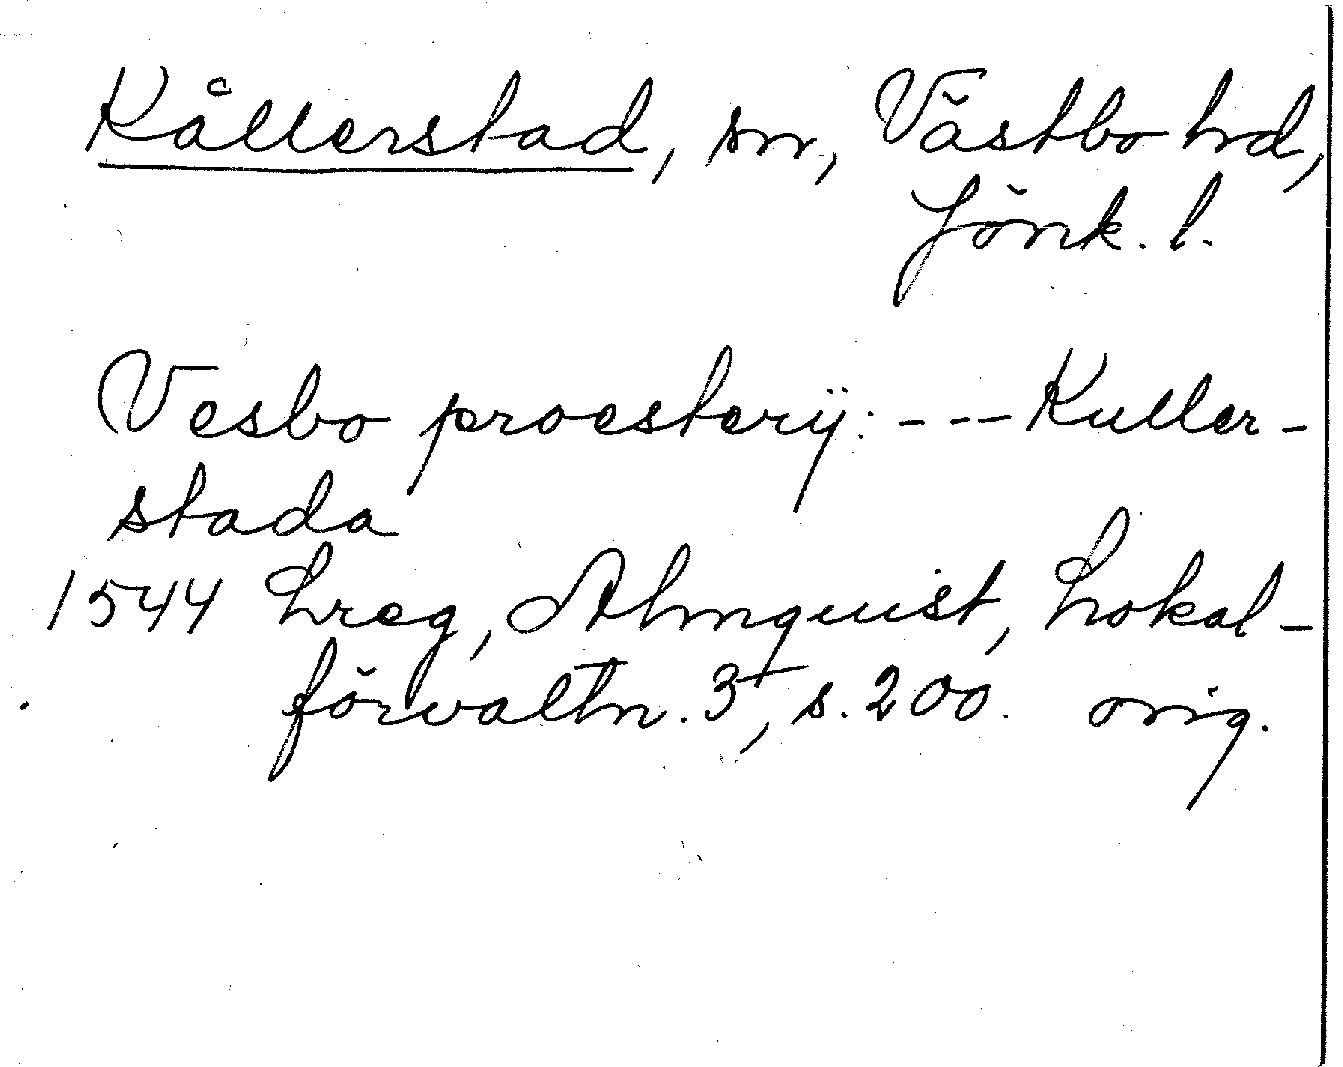 Kållerstad, sn, Västbo hd,
Jönk. l.
Vesbo proesterÿ: --- Kuller-
stada
1544 Lreg, Almquist, Lokal-
förvaltn. 3, s. 200. orig.